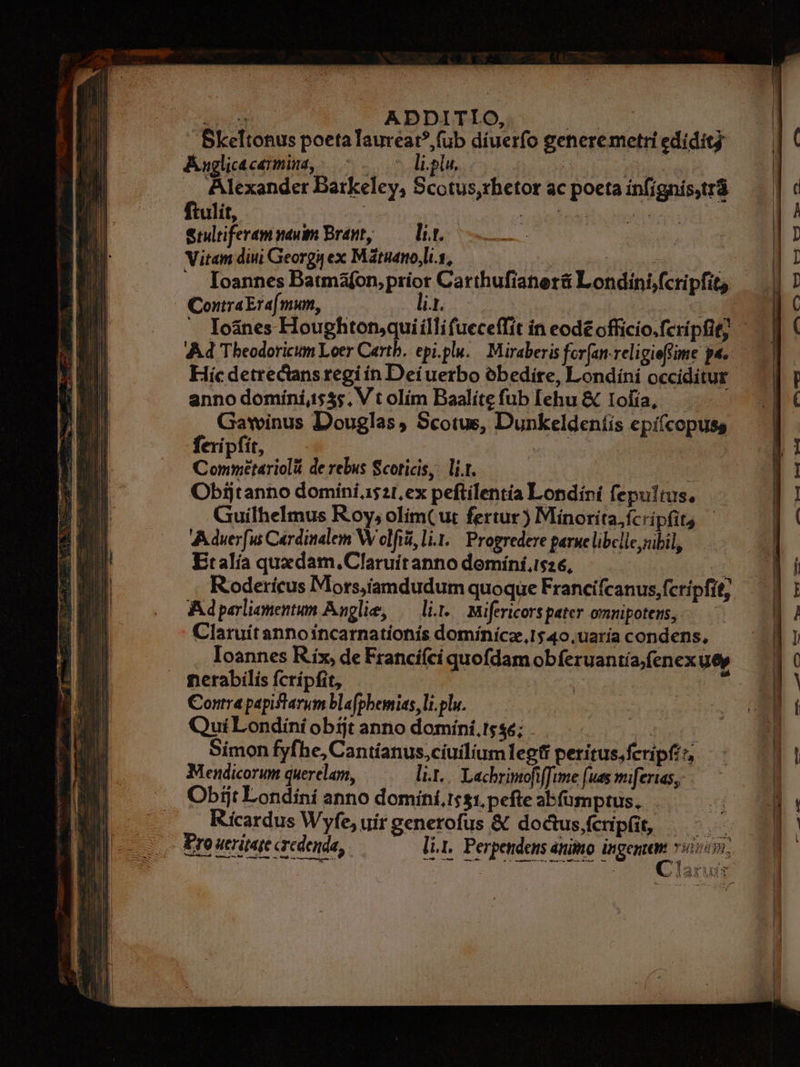 ADDITIO,
Skeltonus poeta laureatꝰ, ſub diuerſo genere metri edidit
Anglica carmina, li.plu.
Alexander Barkeley, Scotus, rhetor ac poeta inſignis, trã
ſtulit,
Stultiferam nauim Brant, li.1.
Vitam diui Georgij ex Mãtuano, li.1,
Ioannes Batmãſon, prior Carthuſianorũ Londini, ſcripſit,
Contra Eraſmum, li.1.
Ioãnes Houghton, qui illi fuecesſit in eodē officio, ſcripſit,
Ad Theodoricum Loer Carth. epi.plu. Miraberis forſan religioſſime pa.
Hic detrectans regi in Dei uerbo obedire, Londini occiditur
anno domini, 1535. Vt olim Baalitę ſub Iehu & Ioſia,
Gawinus Douglas, Scotus, Dunkeldenſis epiſcopus,
ſcripſit,
Commētariolũ de rebus Scoticis, li.1.
Obijt anno domini, 1521, ex peſtilentia Londini ſepultus.
Guilhelmus Roy, olim (ut fertur) Minorita, ſcripſit,
Aduerſus Cardinalem Wolſiũ, li.1. Progredere parue libelle, nihil,
Et alia quædam. Claruit anno domini, 1526,
Rodericus Mors, iamdudum quoque Franciſcanus, ſcripſit,
Ad parliamentum Angliæ, li.1. Miſericors pater omnipotens,
Claruit anno incarnationis dominicæ, 1540, uaria condens,
Ioannes Rix, de Franciſci quoſdam obſeruantia, ſenex ue
nerabilis ſcripſit,
Contra papiſtarum blaſphemias, li.plu.
Qui Londini obijt anno domini, 1536;
Simon fyſhe, Cantianus, ciuilium legũ peritus, ſcripſit,
Mendicorum querelam, li.1. Lachrimoſiſſime ſuas miſerias,
Obijt Londini anno domini, 1531, peſte abſumptus.
Ricardus Wyſe, uir generoſus & doctus, ſcripſit,
Pro ueritate credenda, li.1. Perpendens animo ingentem ruinam,
Claruit